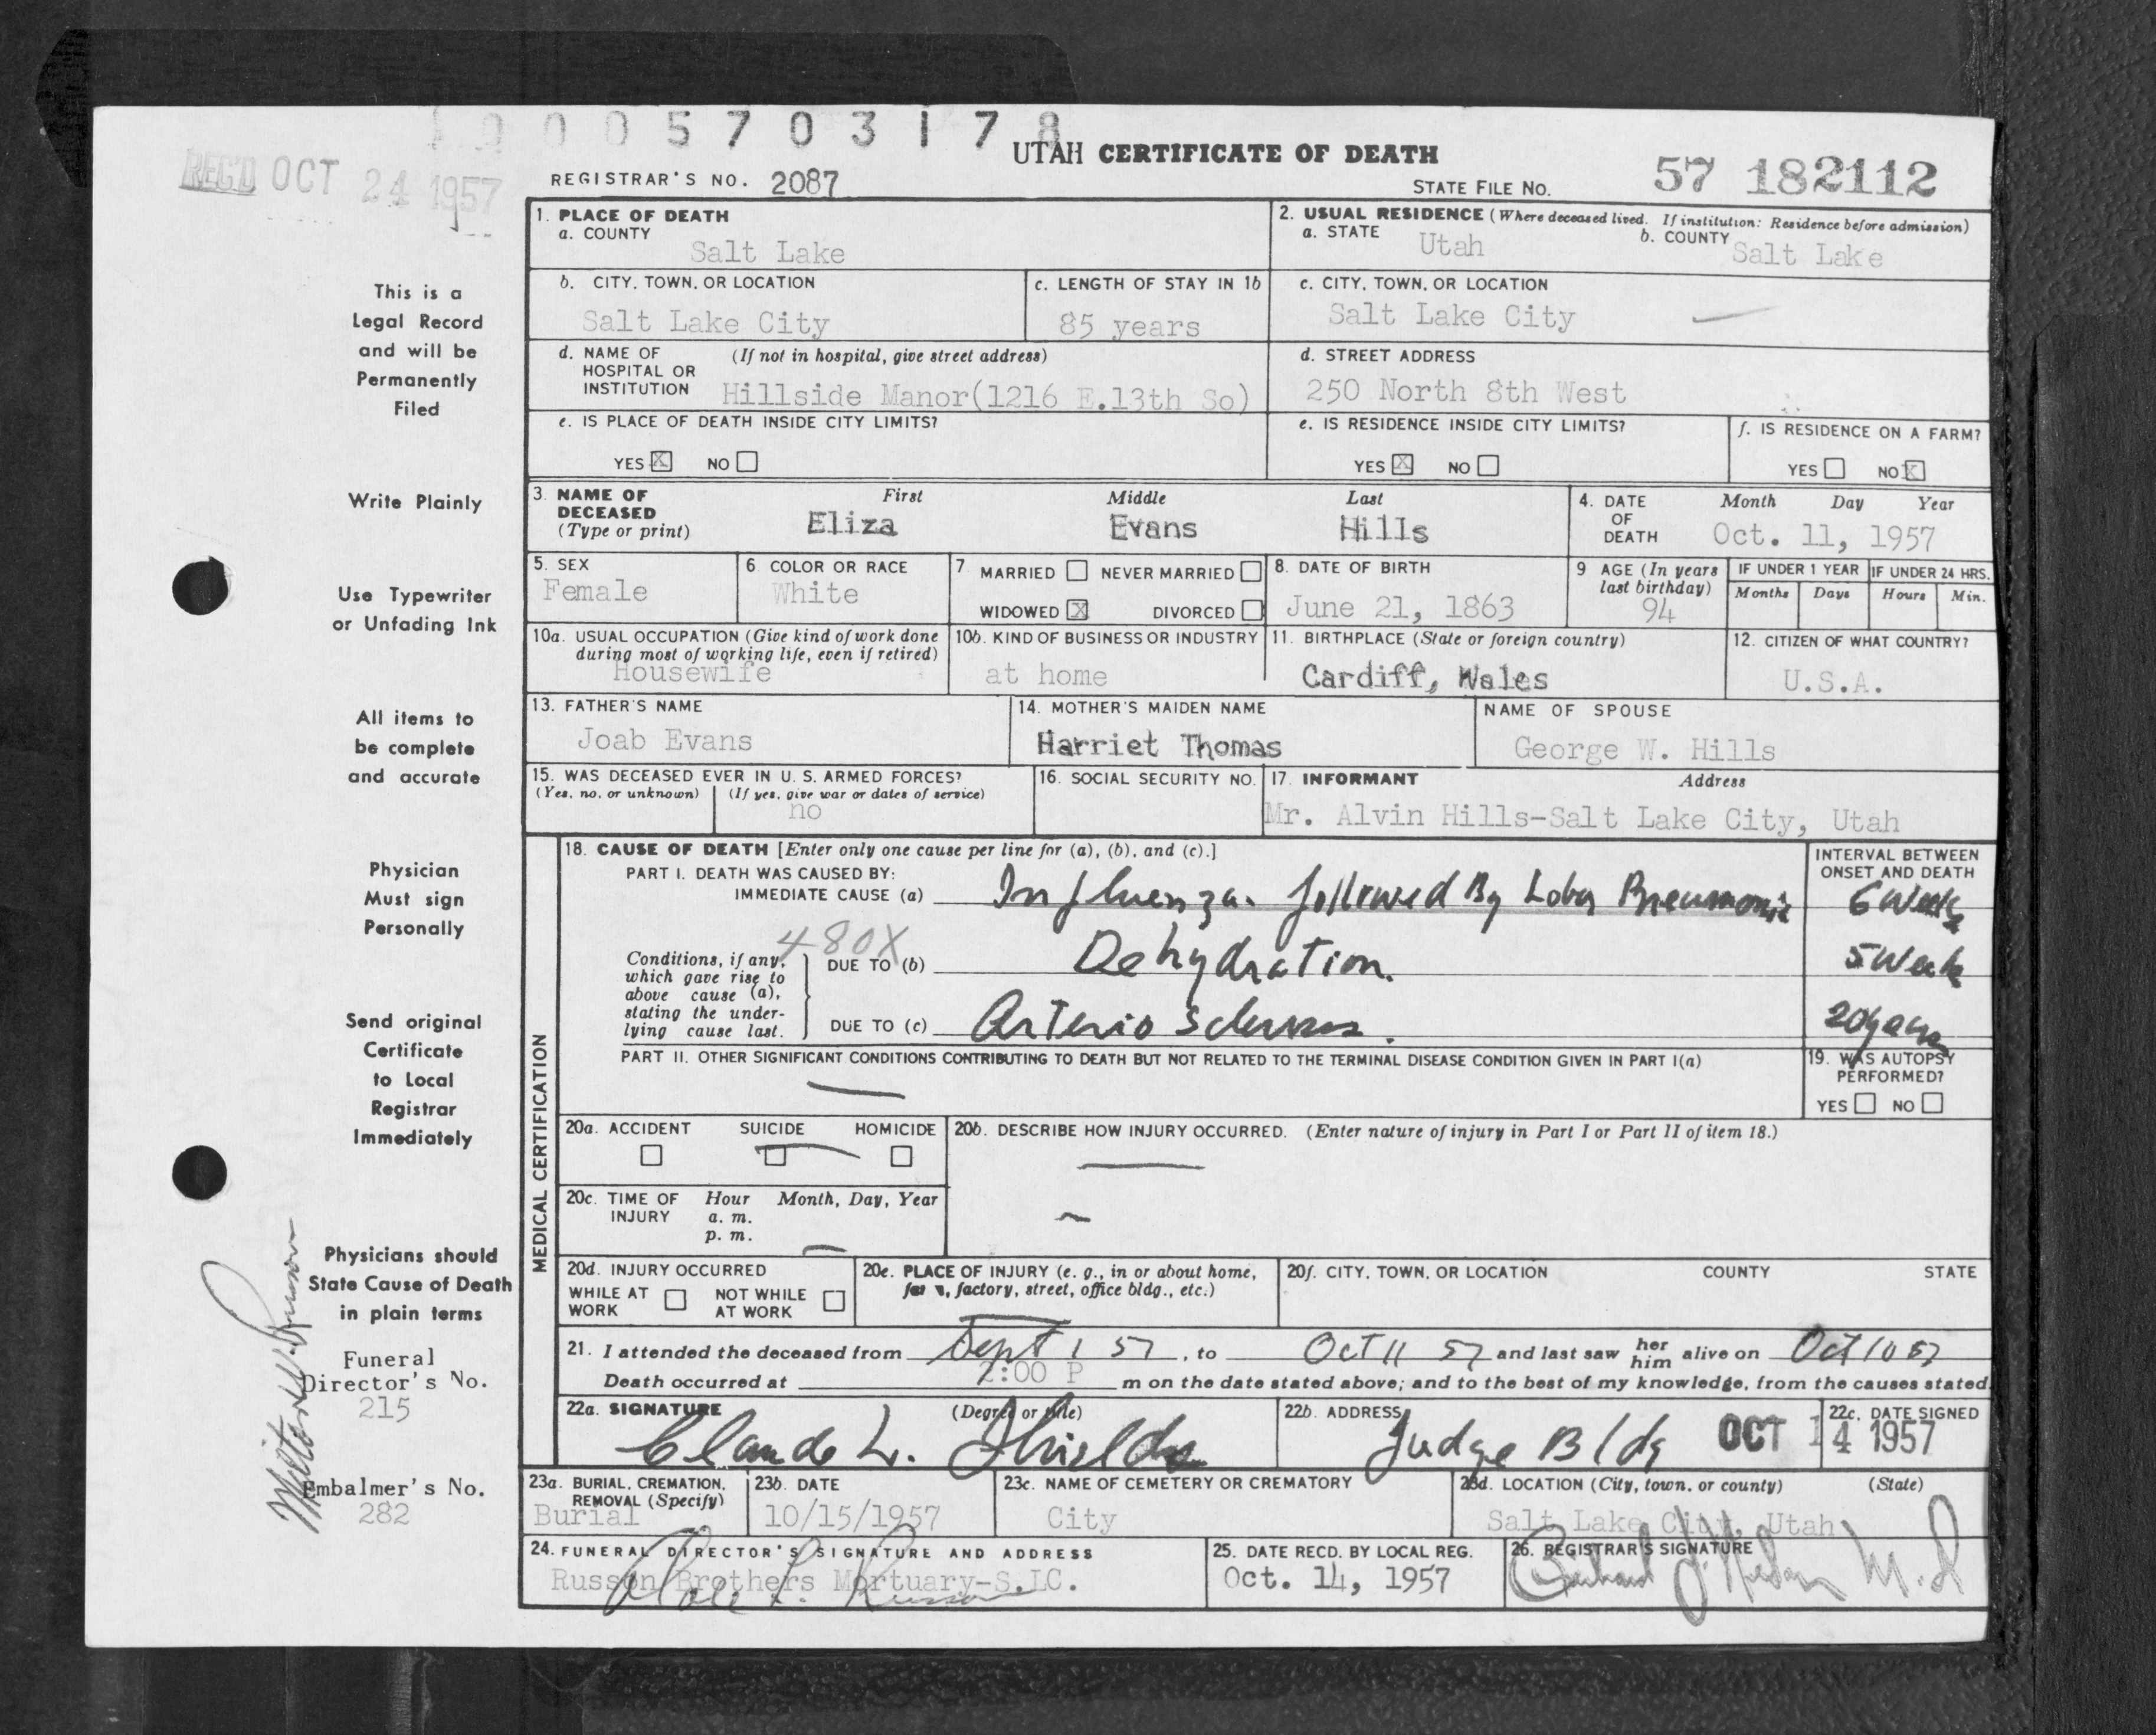 10005703178
REC'D OCT 24 1957
UTAH CERTIFICATE OF DEATH
REGISTRAR'S NO. 2087
STATE FILE NO. 57 182112
This is a
Legal Record
and will be
Permanently
Filed
Write Plainly
Use Typewriter
or Unfading Ink
All items to
be complete
and accurate
Physician
Must sign
Personally
Send original
Certificate
to Local
Registrar
Immediately
Physicians should
State Cause of Death
in plain terms
Funeral
Director's No.
215
Embalmer's No.
282
1. PLACE OF DEATH
a. COUNTY
Salt Lake
2. USUAL RESIDENCE (Where deceased lived. If institution: Residence before admission)
a. STATE Utah b. COUNTY Salt Lake
b. CITY, TOWN, OR LOCATION
Salt Lake City
c. LENGTH OF STAY IN 1b
85 years
c. CITY, TOWN, OR LOCATION
Salt Lake City
d. NAME OF (If not in hospital, give street address)
HOSPITAL OR
INSTITUTION Hillside Manor(1216 E.13th So)
d. STREET ADDRESS
250 North 8th West
e. IS PLACE OF DEATH INSIDE CITY LIMITS?
YES X NO
e. IS RESIDENCE INSIDE CITY LIMITS?
YES X NO
f. IS RESIDENCE ON A FARM?
YES NO X
3. NAME OF First Middle Last
DECEASED
(Type or print) Eliza Evans Hills
4. DATE Month Day Year
OF
DEATH Oct. 11, 1957
5. SEX
Female
6. COLOR OR RACE
White
7. MARRIED NEVER MARRIED
WIDOWED X DIVORCED
8. DATE OF BIRTH
June 21, 1863
9 AGE (In years
last birthday)
94
IF UNDER 1 YEAR
Months Days
IF UNDER 24 HRS.
Hours Min.
10a. USUAL OCCUPATION (Give kind of work done
during most of working life, even if retired)
Housewife
10b. KIND OF BUSINESS OR INDUSTRY
at home
11. BIRTHPLACE (State or foreign country)
Cardiff, Wales
12. CITIZEN OF WHAT COUNTRY?
U.S.A.
13. FATHER'S NAME
Joab Evans
14. MOTHER'S MAIDEN NAME
Harriet Thomas
NAME OF SPOUSE
George W. Hills
15. WAS DECEASED EVER IN U. S. ARMED FORCES?
(Yes, no, or unknown) (If yes, give war or dates of service)
no
16. SOCIAL SECURITY NO.
17. INFORMANT Address
Mr. Alvin Hills-Salt Lake City, Utah
MEDICAL CERTIFICATION
18. CAUSE OF DEATH [Enter only one cause per line for (a), (b), and (c).]
INTERVAL BETWEEN
ONSET AND DEATH
PART I. DEATH WAS CAUSED BY:
IMMEDIATE CAUSE (a) Influenza. followed By Lobar Pneumonia 6 Weeks
480X
Conditions, if any,
which gave rise to
above cause (a),
stating the under-
lying cause last.
DUE TO (b) Dehydration. 5 Week
DUE TO (c) Arterio Sclerosis. 20 years
PART II. OTHER SIGNIFICANT CONDITIONS CONTRIBUTING TO DEATH BUT NOT RELATED TO THE TERMINAL DISEASE CONDITION GIVEN IN PART I(a)
19. WAS AUTOPSY
PERFORMED?
YES NO
20a. ACCIDENT SUICIDE HOMICIDE
20b. DESCRIBE HOW INJURY OCCURRED. (Enter nature of injury in Part I or Part II of item 18.)
20c. TIME OF Hour Month, Day, Year
INJURY a. m.
p. m.
20d. INJURY OCCURRED
WHILE AT WORK NOT WHILE AT WORK
20e. PLACE OF INJURY (e. g., in or about home,
farm, factory, street, office bldg., etc.)
20f. CITY, TOWN, OR LOCATION COUNTY STATE
21. I attended the deceased from Sept 1 57, to Oct 11 57 and last saw her him alive on Oct 10 57
Death occurred at 2:00 P m on the date stated above; and to the best of my knowledge, from the causes stated.
22a. SIGNATURE (Degree or title)
Claude L. Shields
22b. ADDRESS
Judge Bldg
22c. DATE SIGNED
OCT 14 1957
23a. BURIAL, CREMATION,
REMOVAL (Specify)
Burial
23b. DATE
10/15/1957
23c. NAME OF CEMETERY OR CREMATORY
City
23d. LOCATION (City, town, or county) (State)
Salt Lake City, Utah
24. FUNERAL DIRECTOR'S SIGNATURE AND ADDRESS
Russon Brothers Mortuary-S.LC.
25. DATE RECD. BY LOCAL REG.
Oct. 14, 1957
26. REGISTRAR'S SIGNATURE
M.D